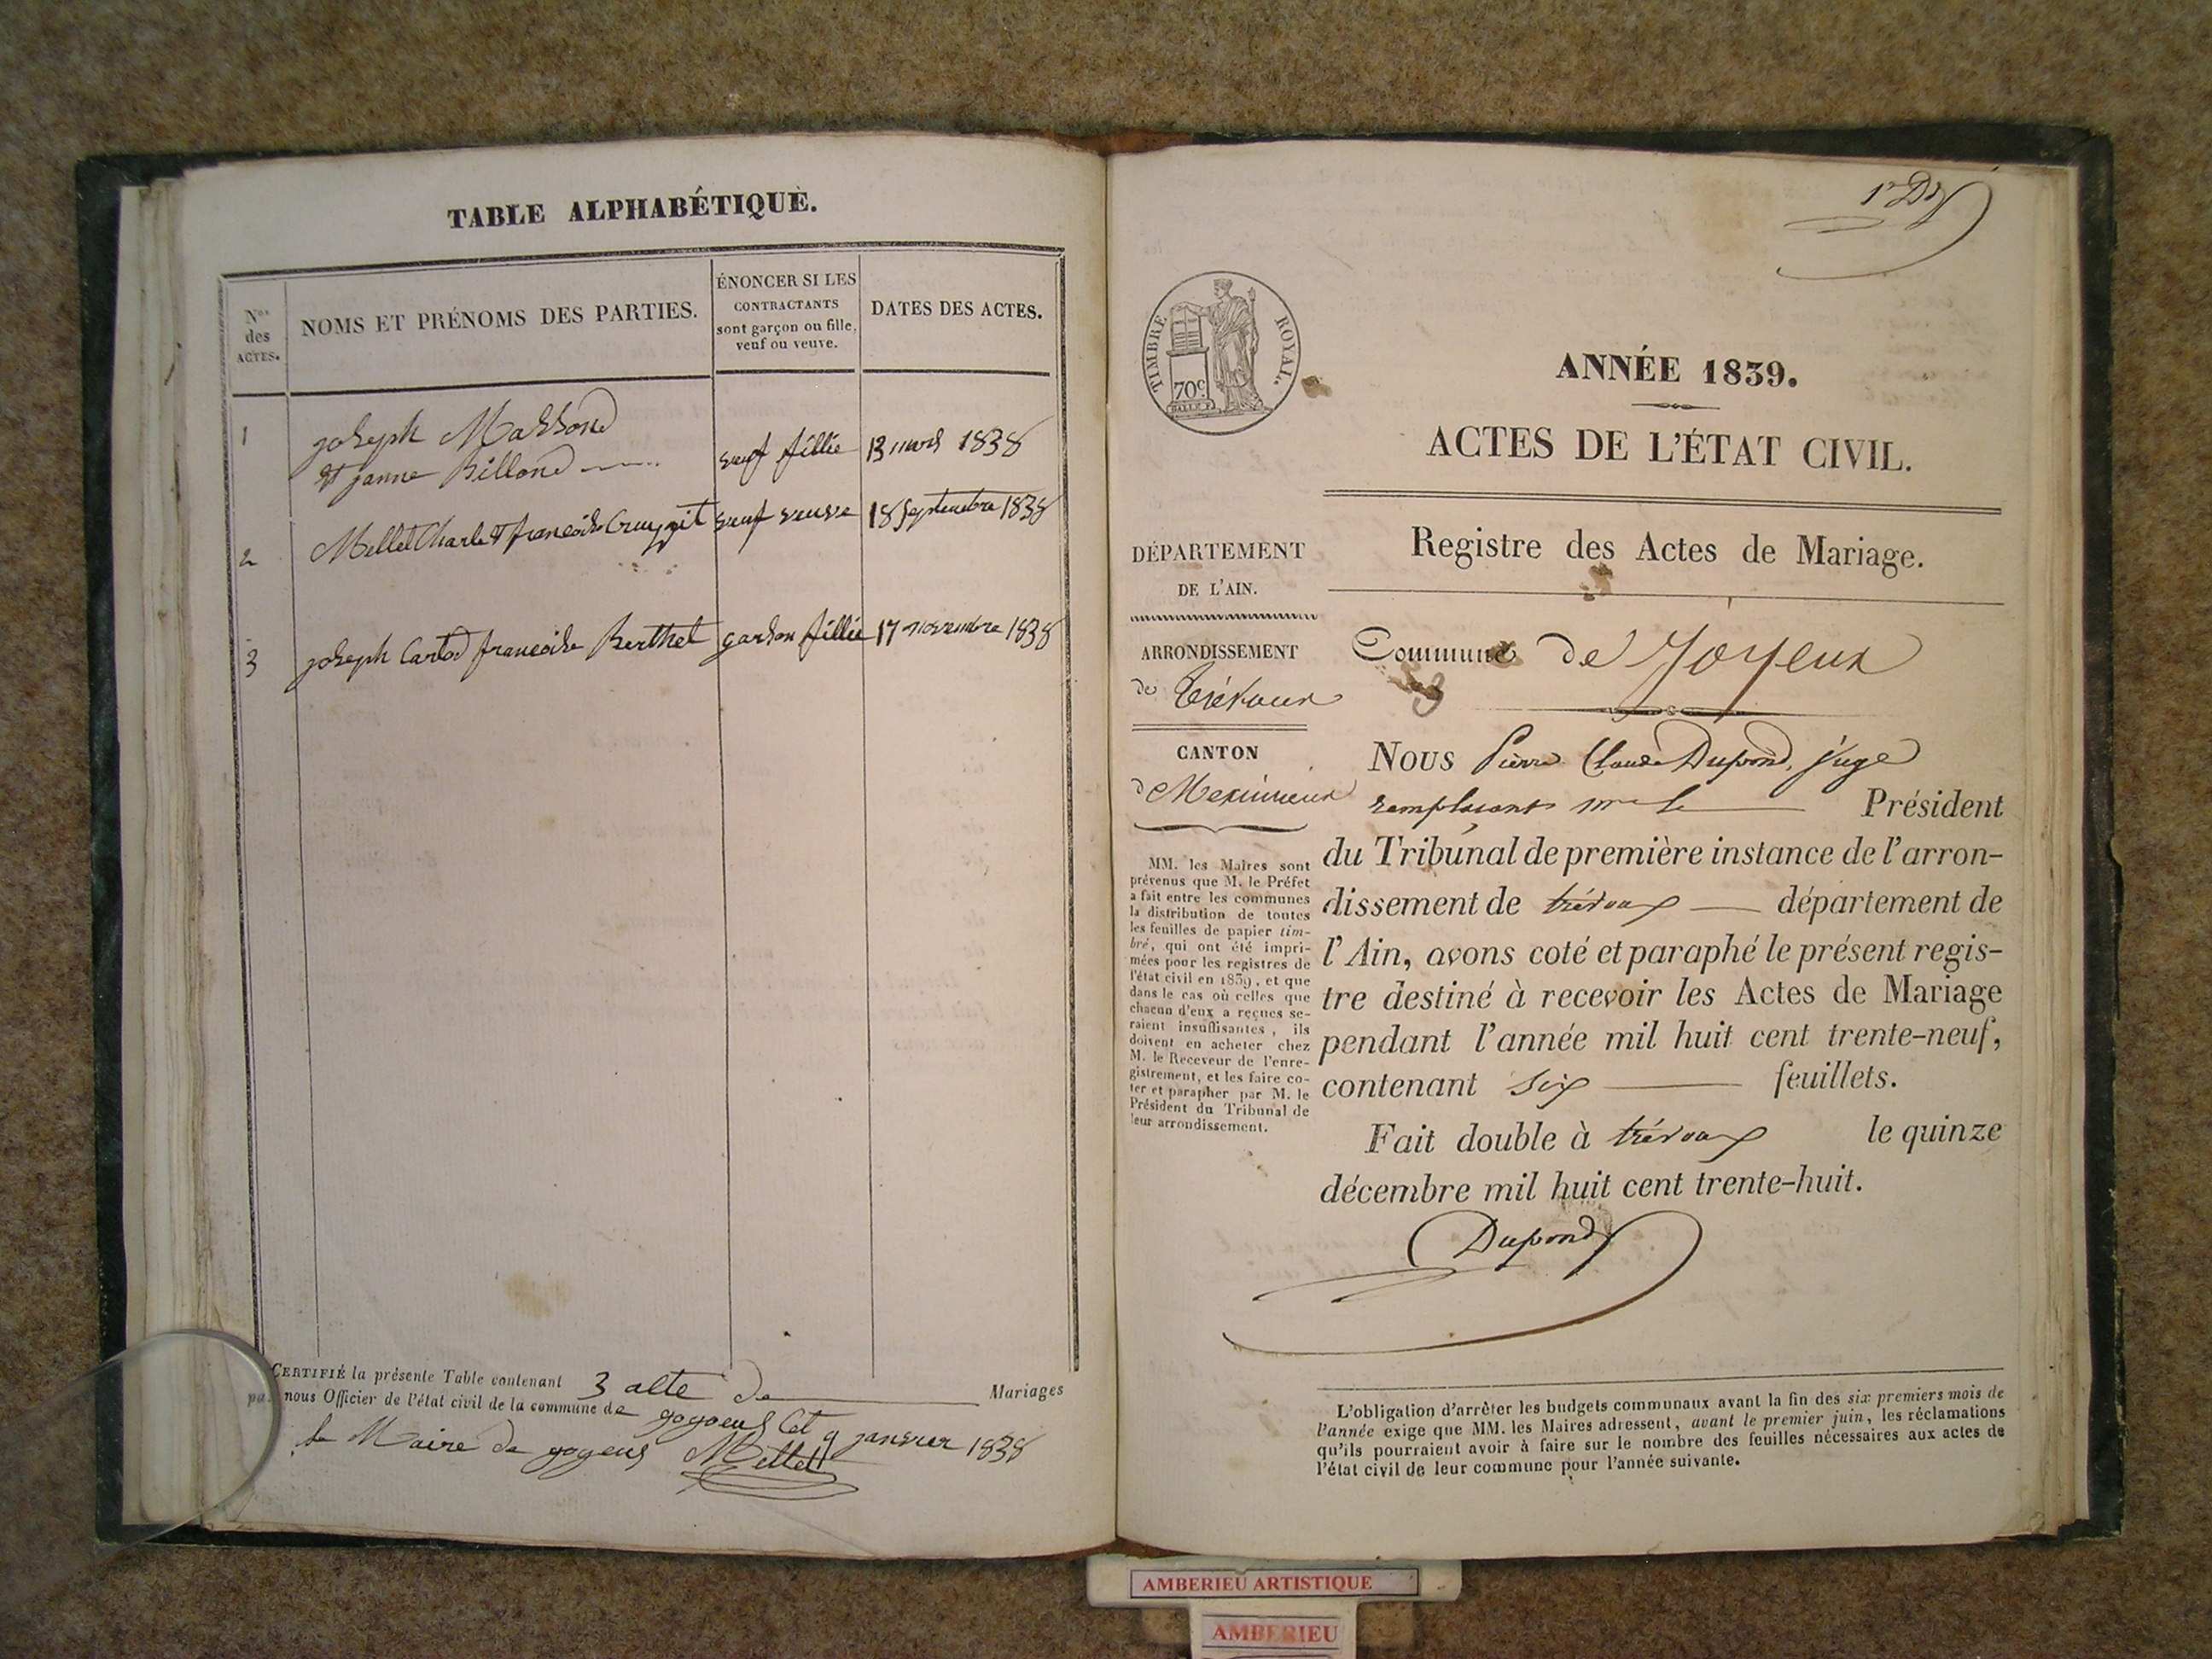 TABLE ALPHABÉTIQUE.
Nos des ACTES.
NOMS ET PRÉNOMS DES PARTIES.
ÉNONCER SI LES
CONTRACTANTS
sont garçon ou fille,
veuf ou veuve.
DATES DES ACTES.
1 joseph Massond
et janne Billond veuf fillie 13 mars 1838
2 Mellet Charle et francoise veuf veuve 18 Septembre 1838
3 joseph francoise Berthet garson fillie 17 novembre 1838
CERTIFIÉ la présente Table contenant 3 alte de Mariages
par nous Officier de l'état civil de la commune de 9 janvier 1838
le Maire de Mellet
TIMBRE ROYAL.
70c
ANNÉE 1839.
ACTES DE L'ÉTAT CIVIL.
Registre des Actes de Mariage.
DÉPARTEMENT
DE L'AIN.
ARRONDISSEMENT
de Trévoux
CANTON
de Meximieux
MM. les Maires sont
prévenus que M. le Préfet
a fait entre les communes
la distribution de toutes
les feuilles de papier tim-
bré, qui ont été impri-
mées pour les registres de
l'état civil en 1839, et que
dans le cas où celles que
chacun d'eux a reçues se-
raient insuffisantes, ils
doivent en acheter chez
M. le Receveur de l'enre-
gistrement, et les faire co-
ter et parapher par M. le
Président du Tribunal de
leur arrondissement.
Commune de Joyeux
Nous Pierre Claude Dupond, juge
remplacant mr le Président
du Tribunal de première instance de l'arron-
dissement de trévoux département de
l'Ain, avons coté et paraphé le présent regis-
tre destiné à recevoir les Actes de Mariage
pendant l'année mil huit cent trente-neuf,
contenant six feuillets.
Fait double à trévoux le quinze
décembre mil huit cent trente-huit.
Dupond
L'obligation d'arrêter les budgets communaux avant la fin des six premiers mois de
l'année exige que MM. les Maires adressent, avant le premier juin, les réclamations
qu'ils pourraient avoir à faire sur le nombre des feuilles nécessaires aux actes de
l'état civil de leur commune pour l'année suivante.
AMBERIEU ARTISTIQUE
AMBERIEU